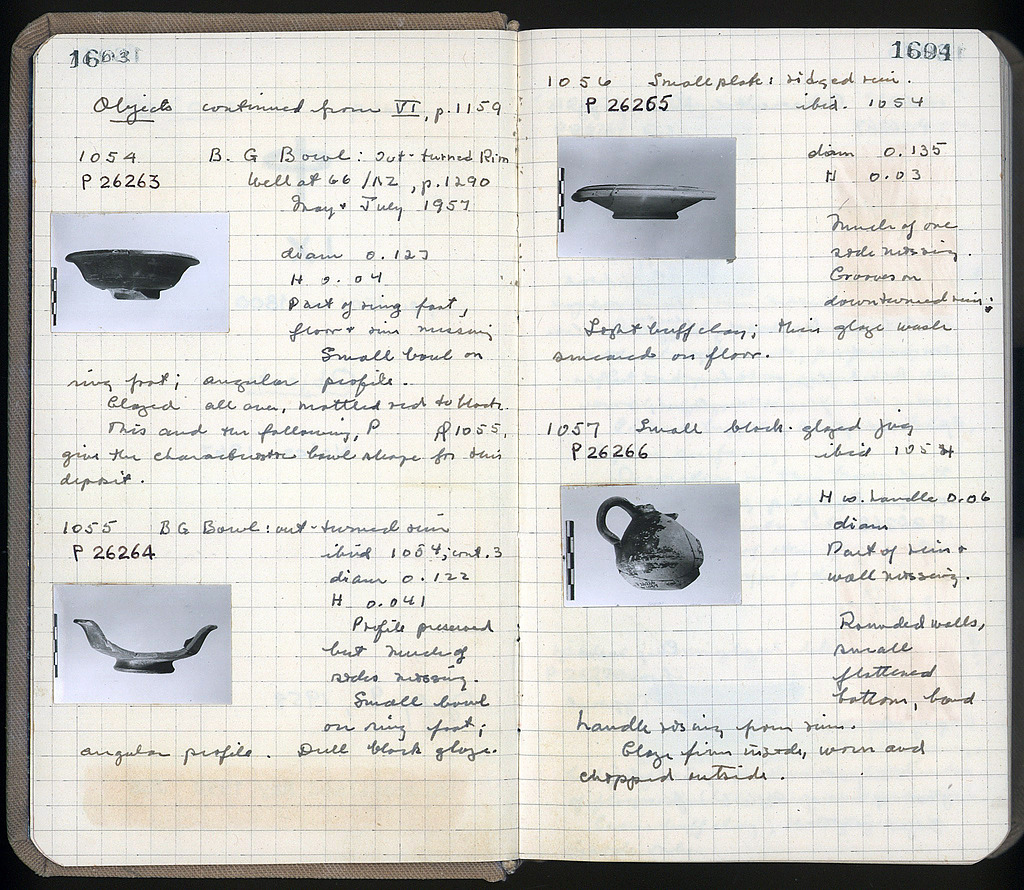 1603
Objects continued from VI, p. 1159
1054 B. G Bowl: out-turned Rim
P 26263 Well at 66 /ΛZ, p. 1290
May + July 1957
diam 0.123
H 0.04
Part of ring foot,
floor + rim missing
Small bowl on
ring foot; angular profile.
Glazed all over, mottled red to black.
This and the following, P 1055,
give the characteristic bowl shape for this
deposit.
1055 BG Bowl: out-turned rim
P 26264 ibid 1054; cont. 3
diam 0.122
H 0.041
Profile preserved
but much of
sides missing.
Small bowl
on ring foot;
angular profile. Dull black glaze.
1604
1056 Small plate: ridged rim.
P 26265 ibid. 1054
diam 0.135
H 0.03
Much of one
side missing.
Grooves on
downturned rim.
Light buff clay; thin glaze wash
smeared on floor.
1057 Small black-glazed jug
P 26266 ibid 1054
H w. handle 0.06
diam
Part of rim +
wall missing.
Rounded walls,
small
flattened
bottom, band
handle rising from rim.
Glaze firm inside, worn and
chipped outside.